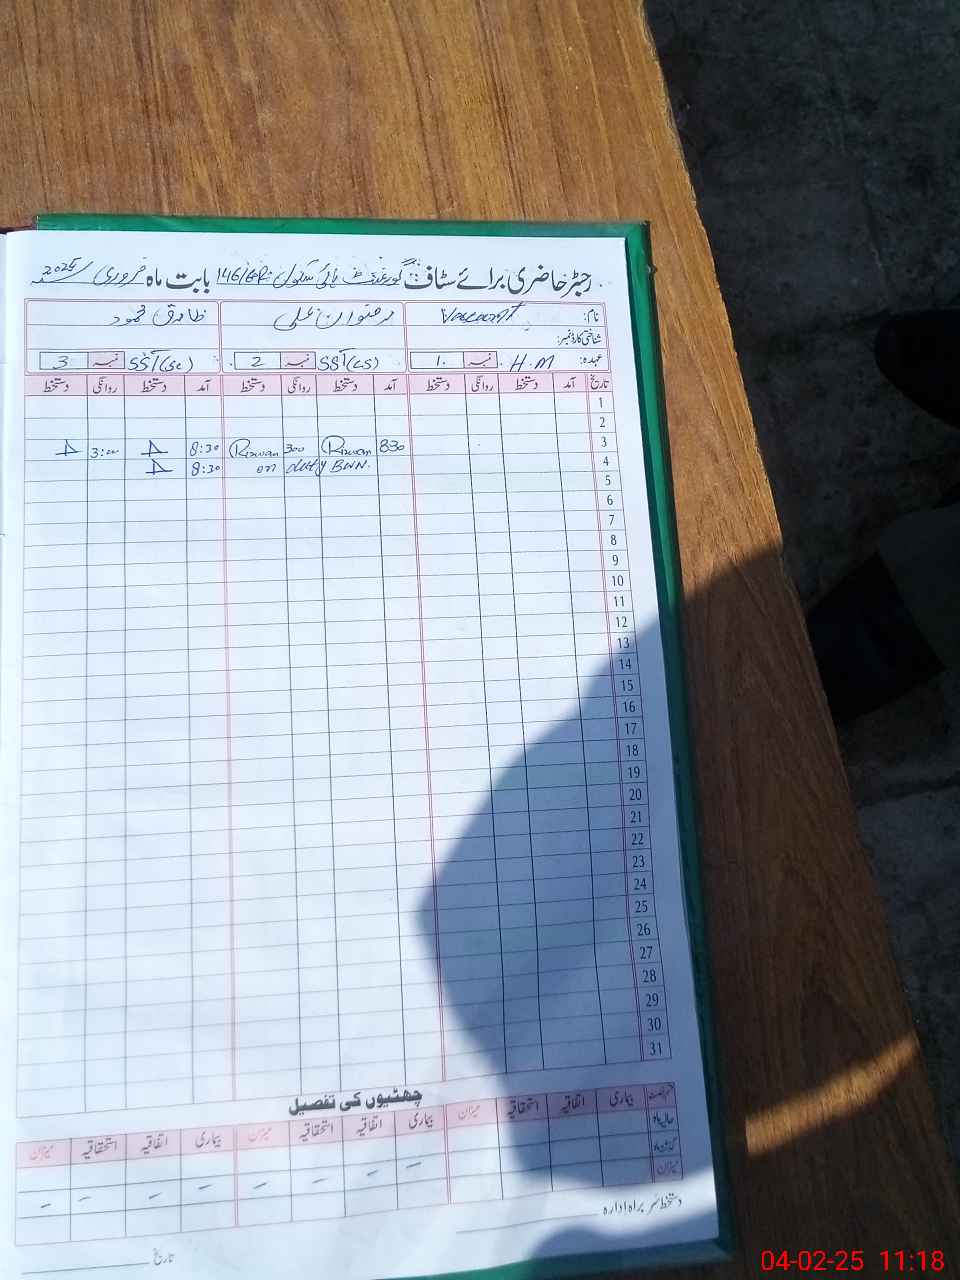 رجسٹر حاضری برائے سٹاف گورنمنٹ ہائی سکول 146/6R بابت ماہ فروری سنہ 2025
نام: Vaccant رضوان علی طارق محمود
شناختی کارڈ نمبر:
عہدہ: H.M نمبر 1 SSآ(LS) نمبر 2 SSآ(Sc) نمبر 3
تاریخ آمد دستخط روانگی دستخط آمد دستخط روانگی دستخط آمد دستخط روانگی دستخط
1
2
3 830 Rizwan 300 Rizwan 8:30 3:00
4 on duty BWN. 8:30
5
6
7
8
9
10
11
12
13
14
15
16
17
18
19
20
21
22
23
24
25
26
27
28
29
30
31
چھٹیوں کی تفصیل
بیماری اتفاقیہ استحقاقیہ میزان بیماری اتفاقیہ استحقاقیہ میزان بیماری اتفاقیہ استحقاقیہ میزان
حال ماہ
میزان
دستخط سربراہ ادارہ
تاریخ
04-02-25 11:18